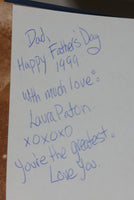 Dad,
Happy Father's Day
1999
with much love:
Laura Paton
xoxoxo
You're the greatest.
Love You.